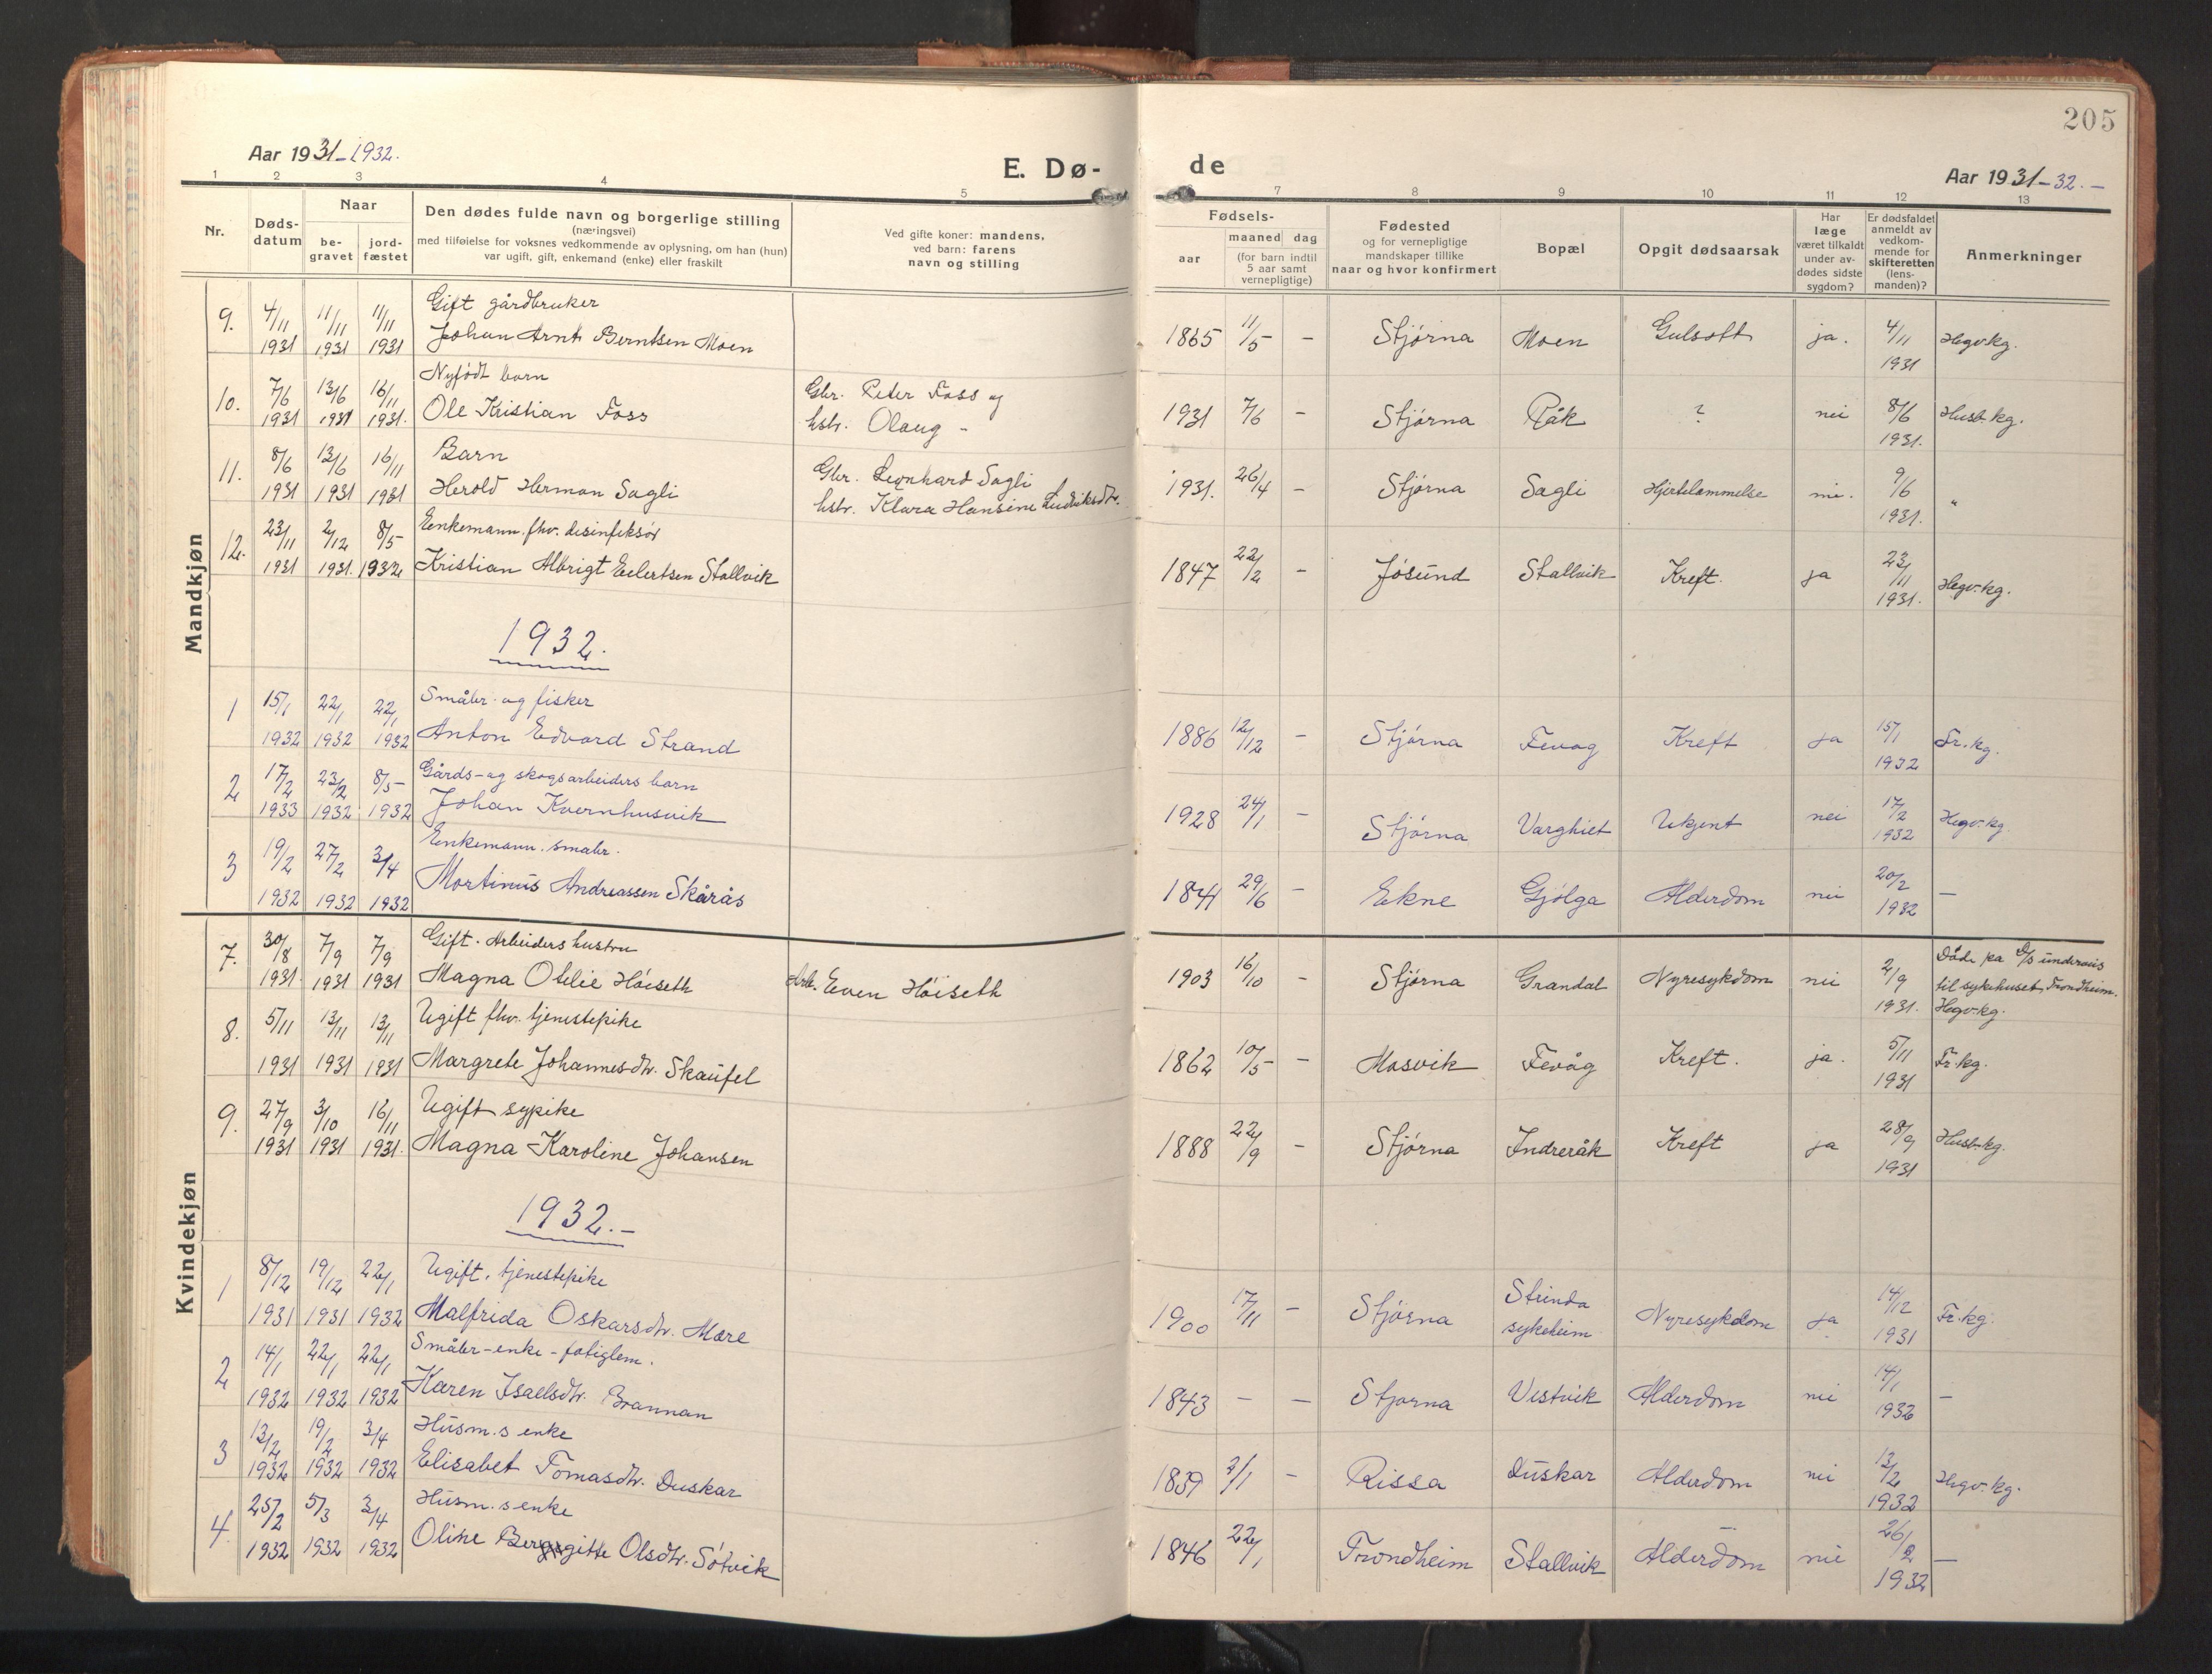 205
Aar 1931-1932.
E. Dø-
de
Aar 1931-32.-
1 2 3 4 5
7 8 9 10 11 12 13
Nr.
Døds-
datum
Naar
be-
gravet
jord-
fæstet
Den dødes fulde navn og borgerlige stilling
(næringsvei)
med tilføielse for voksnes vedkommende av oplysning, om han (hun)
var ugift, gift, enkemand (enke) eller fraskilt
Ved gifte koner: mandens,
ved barn: farens
navn og stilling
Fødsels-
aar
maaned dag
(for barn indtil
5 aar samt
vernepligtige)
Fødested
og for vernepligtige
mandskaper tillike
naar og hvor konfirmert
Bopæl
Opgit dødsaarsak
Har
læge
været tilkaldt
under av-
dødes sidste
sygdom?
Er dødsfaldet
anmeldt av
vedkom-
mende for
skifteretten
(lens-
manden)?
Anmerkninger
Mandkjøn
9. 4/11 11/11 11/11 Gift gårdbruker
1931 1931 1931 Johan Arnt Berntsen Moen
1865 11/5 - Stjørna Moen Gulsott ja. 4/11 Hegv.kg.
1931
10. 7/6 13/6 16/11 Nyfødt barn Gbr. Peter Foss og
1931 1931 1931. Ole Kristian Foss hstr. Olaug -
1931 7/6 - Stjørna Råk ? nei 8/6 Husb.kg.
1931.
11. 8/6 13/6 16/11 Barn Gbr. Leonhard Sagli
1931 1931 1931 Herold Herman Sagli hstr. Klara Hansine Ludviksdtr.
1931. 26/4 - Stjørna Sagli Hjertelammelse nei. 9/6 "
1931.
12. 23/11 2/12 8/5 Enkemann. fhv. desinfeksør
1931 1931. 1932 Kristian Albrigt Eilertsen Stallvik
1847 22/2 - Jøsund Stallvik Kreft. ja 23/11 Hegv.kg.
1931.
1932.
1 15/1 22/1 22/1 Småbr. og fisker
1932 1932 1932 Anton Edvard Strand
1886 12/12 - Stjørna Fevag Kreft ja 15/1 Fr.kg.
1932
2 17/2 23/2 8/5 Gårds- og skogsarbeiders barn
1933 1932 1932 Johan Kvernhusvik
1928 24/1 - Stjørna Varghiet Ukjent nei 17/2 Hegv.kg.
1932
3 19/2 27/2 3/4 Enkemann. småbr.
1932 1932 1932 Martinus Andreassen Skårås
1841 29/6 - Ekne Gjølga Alderdom nei 20/2 -
1932
Kvindekjøn
7. 30/8 7/9 7/9 Gift. Arbeiders hustru
1931. 1931 1931 Magna Otelie Höiseth Arb. Even Höiseth
1903 16/10 - Stjørna Grandal Nyresykdom nei 2/9 Døde på D/S underveis
til sykehuset, Trondheim.
1931. Hegv.kg.
8. 5/11 13/11 13/11 Ugift fhv. tjenestepike
1931 1931 1931 Margrete Johannesdtr. Skaufel
1862 10/5 - Mosvik Fevåg Kreft. ja. 5/11 Fr.kg.
1931
9. 27/9 3/10 16/11 Ugift sypike
1931 1931 1931. Magna Karoline Johansen
1888 22/9 - Stjørna Indreråk Kreft ja 28/9 Husb.kg.
1931
1932.-
1 8/12 19/12 22/1 Ugift, tjenestepike
1931 1931 1932 Malfrida Oskarsdtr. Mære
1900 17/11 - Stjørna Strinda
sykeheim Nyresykdom ja 14/12 Fr.kg.
1931
2 14/1 22/1 22/1 Småbr-enke-fatiglem.
1932 1932 1932 Karen Isaelsdtr. Brannan
1843 - - Stjørna Vestvik Alderdom nei 14/1 -
1932
3 13/2 19/2 3/4 Husm.s enke
1932 1932 1932 Elisabet Tomasdtr. Duskar
1839 3/1 - Rissa Duskar Alderdom nei 13/2 Hegv.kg.
1932
4. 25/2 5/3 3/4 Husm.s enke
1932 1932 1932 Oline Bergitte Olsdtr. Søtvik
1846 22/1 Trondheim Stallvik Alderdom nei 26/2 -
1932